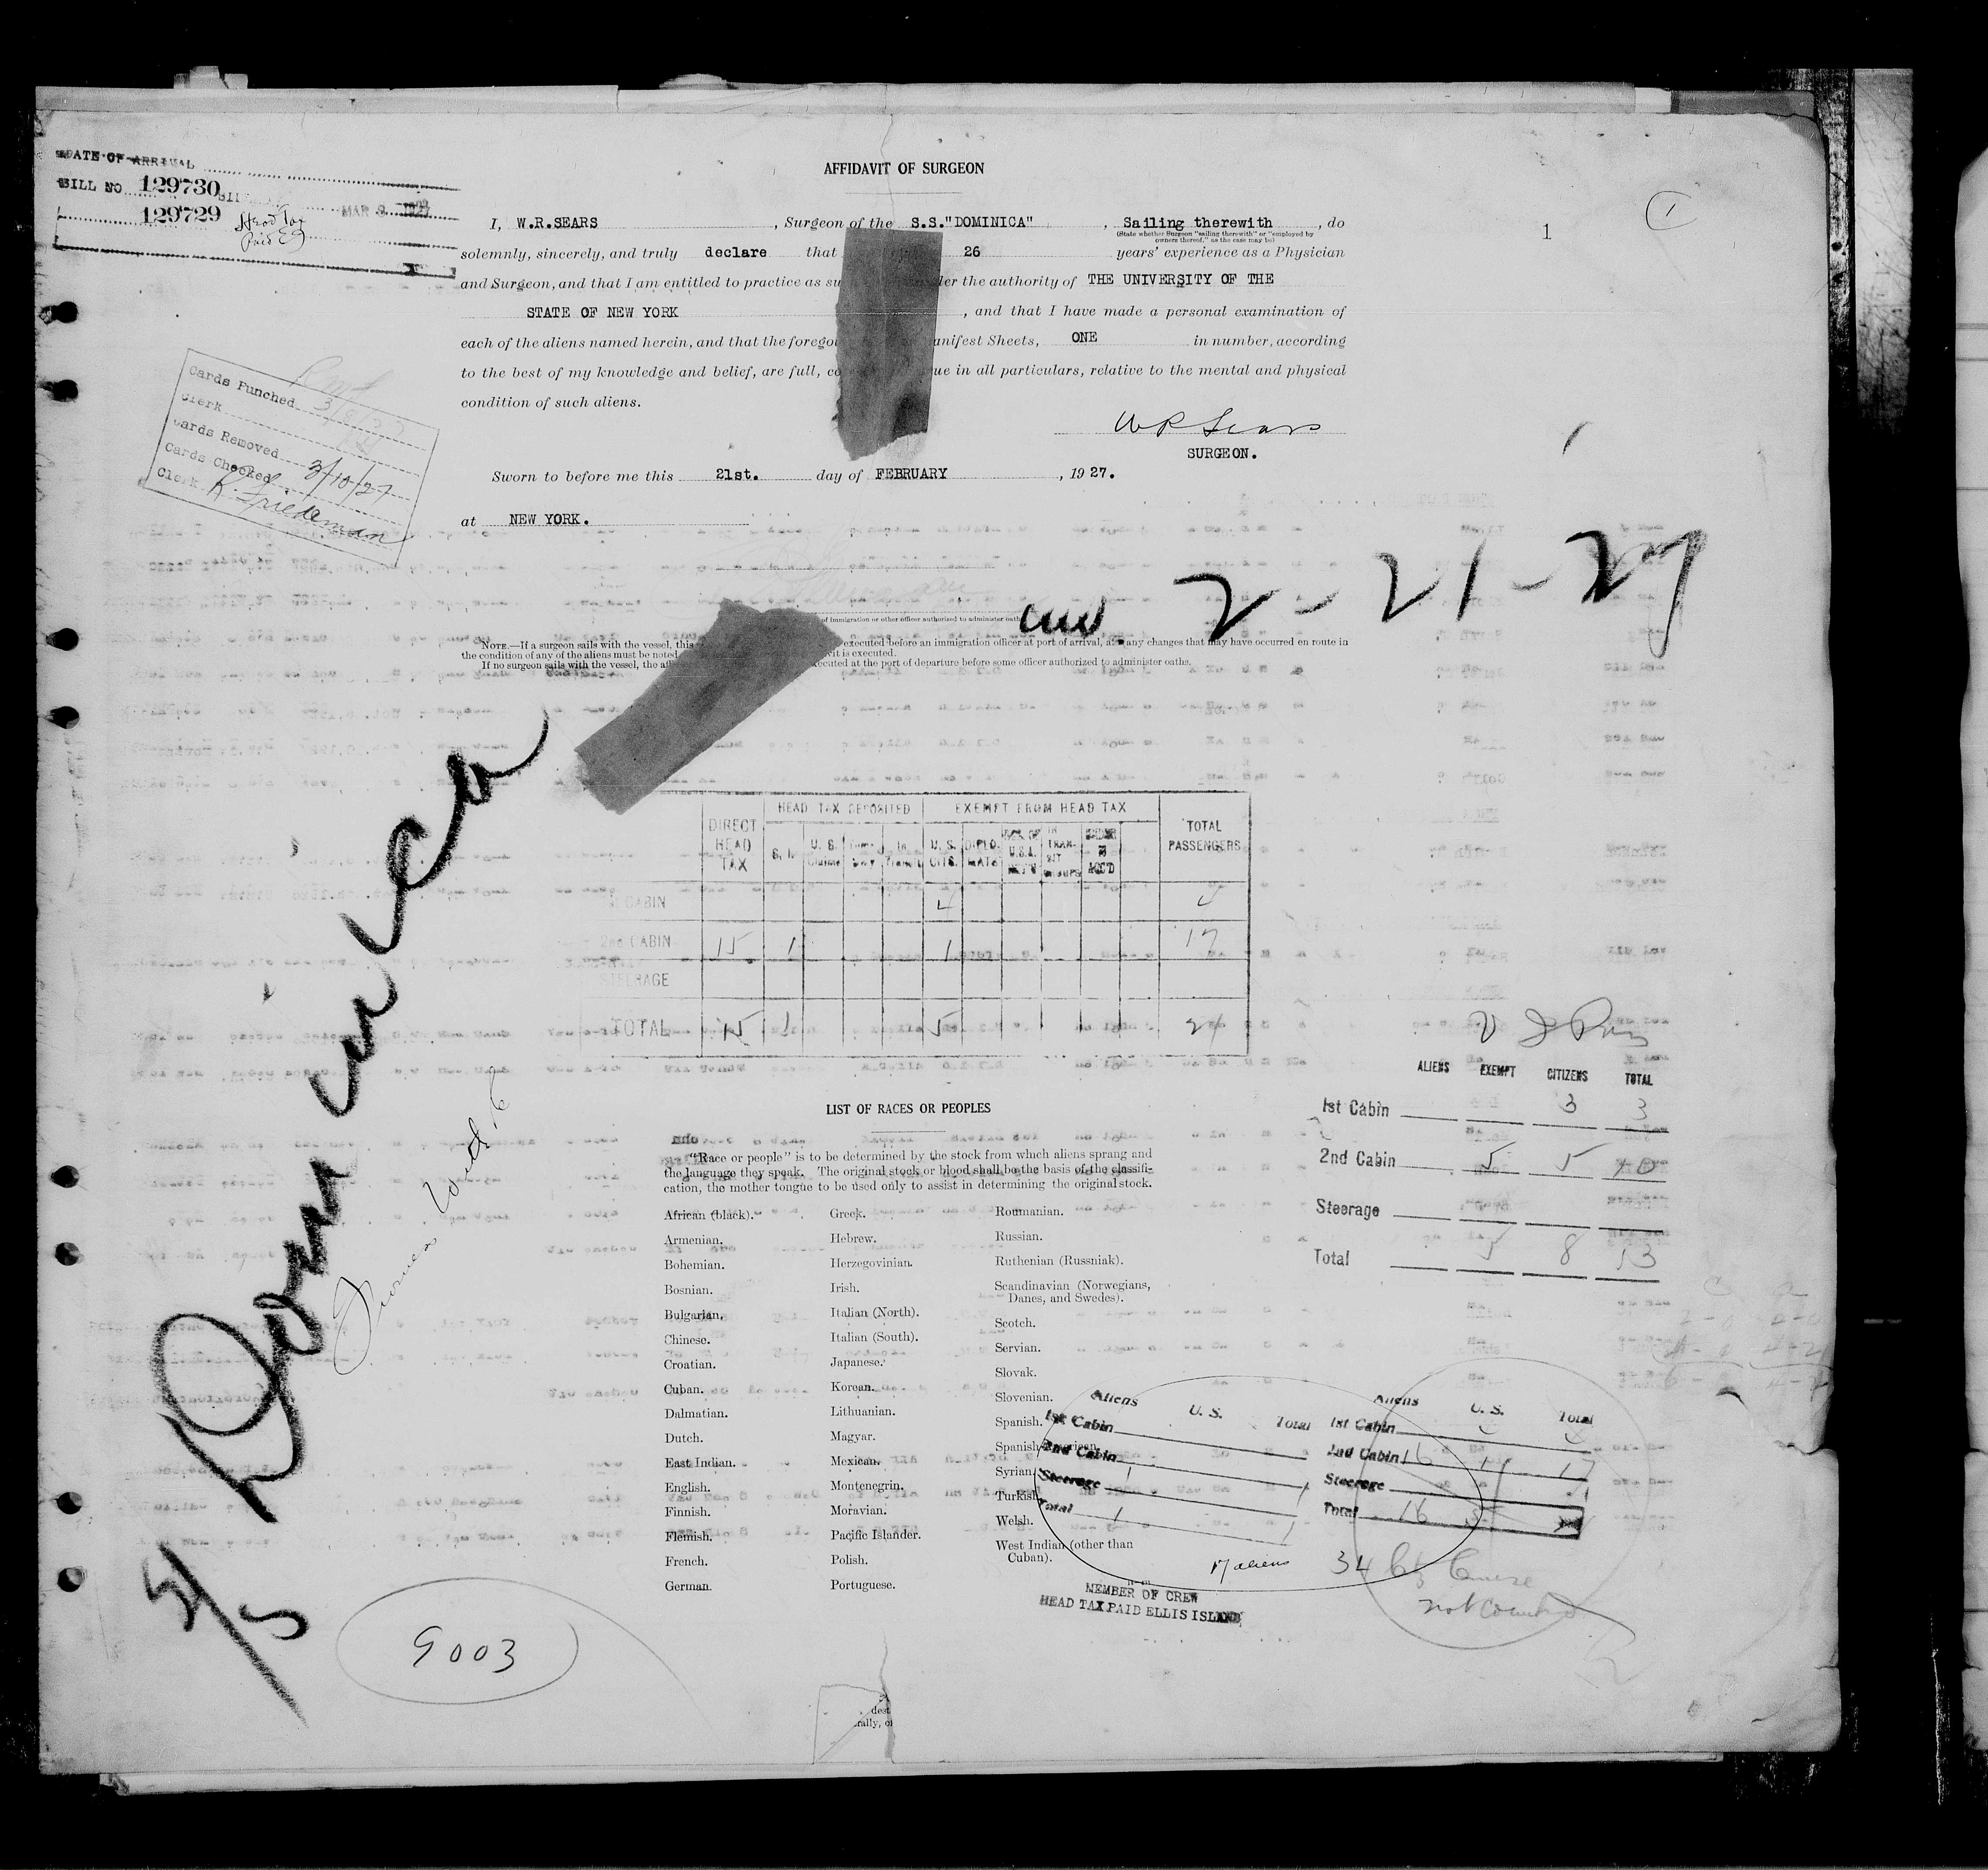 DATE OF ARRIVAL
BILL NO. 129730
129729 Head Tax
Paid
MAR 3 1927
AFFIDAVIT OF SURGEON
1
1
I, W.R.SEARS, Surgeon of the S.S."DOMINICA", Sailing therewith, do
(State whether Surgeon "sailing therewith" or "employed by
owners thereof," as the case may be)
solemnly, sincerely, and truly declare that 26 years' experience as a Physician
and Surgeon, and that I am entitled to practice as su der the authority of THE UNIVERSITY OF THE
STATE OF NEW YORK, and that I have made a personal examination of
each of the aliens named herein, and that the forego anifest Sheets, ONE in number, according
to the best of my knowledge and belief, are full, co ue in all particulars, relative to the mental and physical
condition of such aliens.
W R Sears
SURGEON.
Sworn to before me this 21st. day of FEBRUARY, 1927.
at NEW YORK.
Cards Punched
Clerk
Cards Removed
Cards Checked 3/10/27
Clerk R. Friedeman
2-21-27
of Immigration or other officer authorized to administer oath
NOTE.—If a surgeon sails with the vessel, this executed before an immigration officer at port of arrival, any changes that may have occurred en route in
the condition of any of the aliens must be noted vit is executed.
If no surgeon sails with the vessel, the aff ecuted at the port of departure before some officer authorized to administer oaths.
Dominica
HEAD TAX DEPOSITED EXEMPT FROM HEAD TAX
DIRECT HEAD TAX S. I. U. S. In Transit U. S. CITS. DIPLO-MATS IN TRAN-SIT TOTAL PASSENGERS
CABIN 4 4
2nd CABIN 15 1 1 17
STEERAGE
TOTAL 15 1 5 21
ALIENS EXEMPT CITIZENS TOTAL
1st Cabin 3 3
2nd Cabin 5 5 10
Steerage
Total 5 8 13
LIST OF RACES OR PEOPLES
"Race or people" is to be determined by the stock from which aliens sprang and
the language they speak. The original stock or blood shall be the basis of the classifi-
cation, the mother tongue to be used only to assist in determining the original stock.
African (black).
Armenian.
Bohemian.
Bosnian.
Bulgarian.
Chinese.
Croatian.
Cuban.
Dalmatian.
Dutch.
East Indian.
English.
Finnish.
Flemish.
French.
German.
Greek.
Hebrew.
Herzegovinian.
Irish.
Italian (North).
Italian (South).
Japanese.
Korean.
Lithuanian.
Magyar.
Mexican.
Montenegrin.
Moravian.
Pacific Islander.
Polish.
Portuguese.
Roumanian.
Russian.
Ruthenian (Russniak).
Scandinavian (Norwegians,
Danes, and Swedes).
Scotch.
Servian.
Slovak.
Slovenian.
Spanish.
Spanish American.
Syrian.
Turkish.
Welsh.
West Indian (other than
Cuban).
Aliens U. S. Total
1st Cabin
2nd Cabin
Steerage 1 1
Total 1 1
Aliens U. S. Total
1st Cabin 4 4
2nd Cabin 16 1 17
Steerage
Total 16 5
17 aliens
34 Cruise
not counted
MEMBER OF CREW
HEAD TAX PAID ELLIS ISLAND
5/5
9003
dest
rally, or